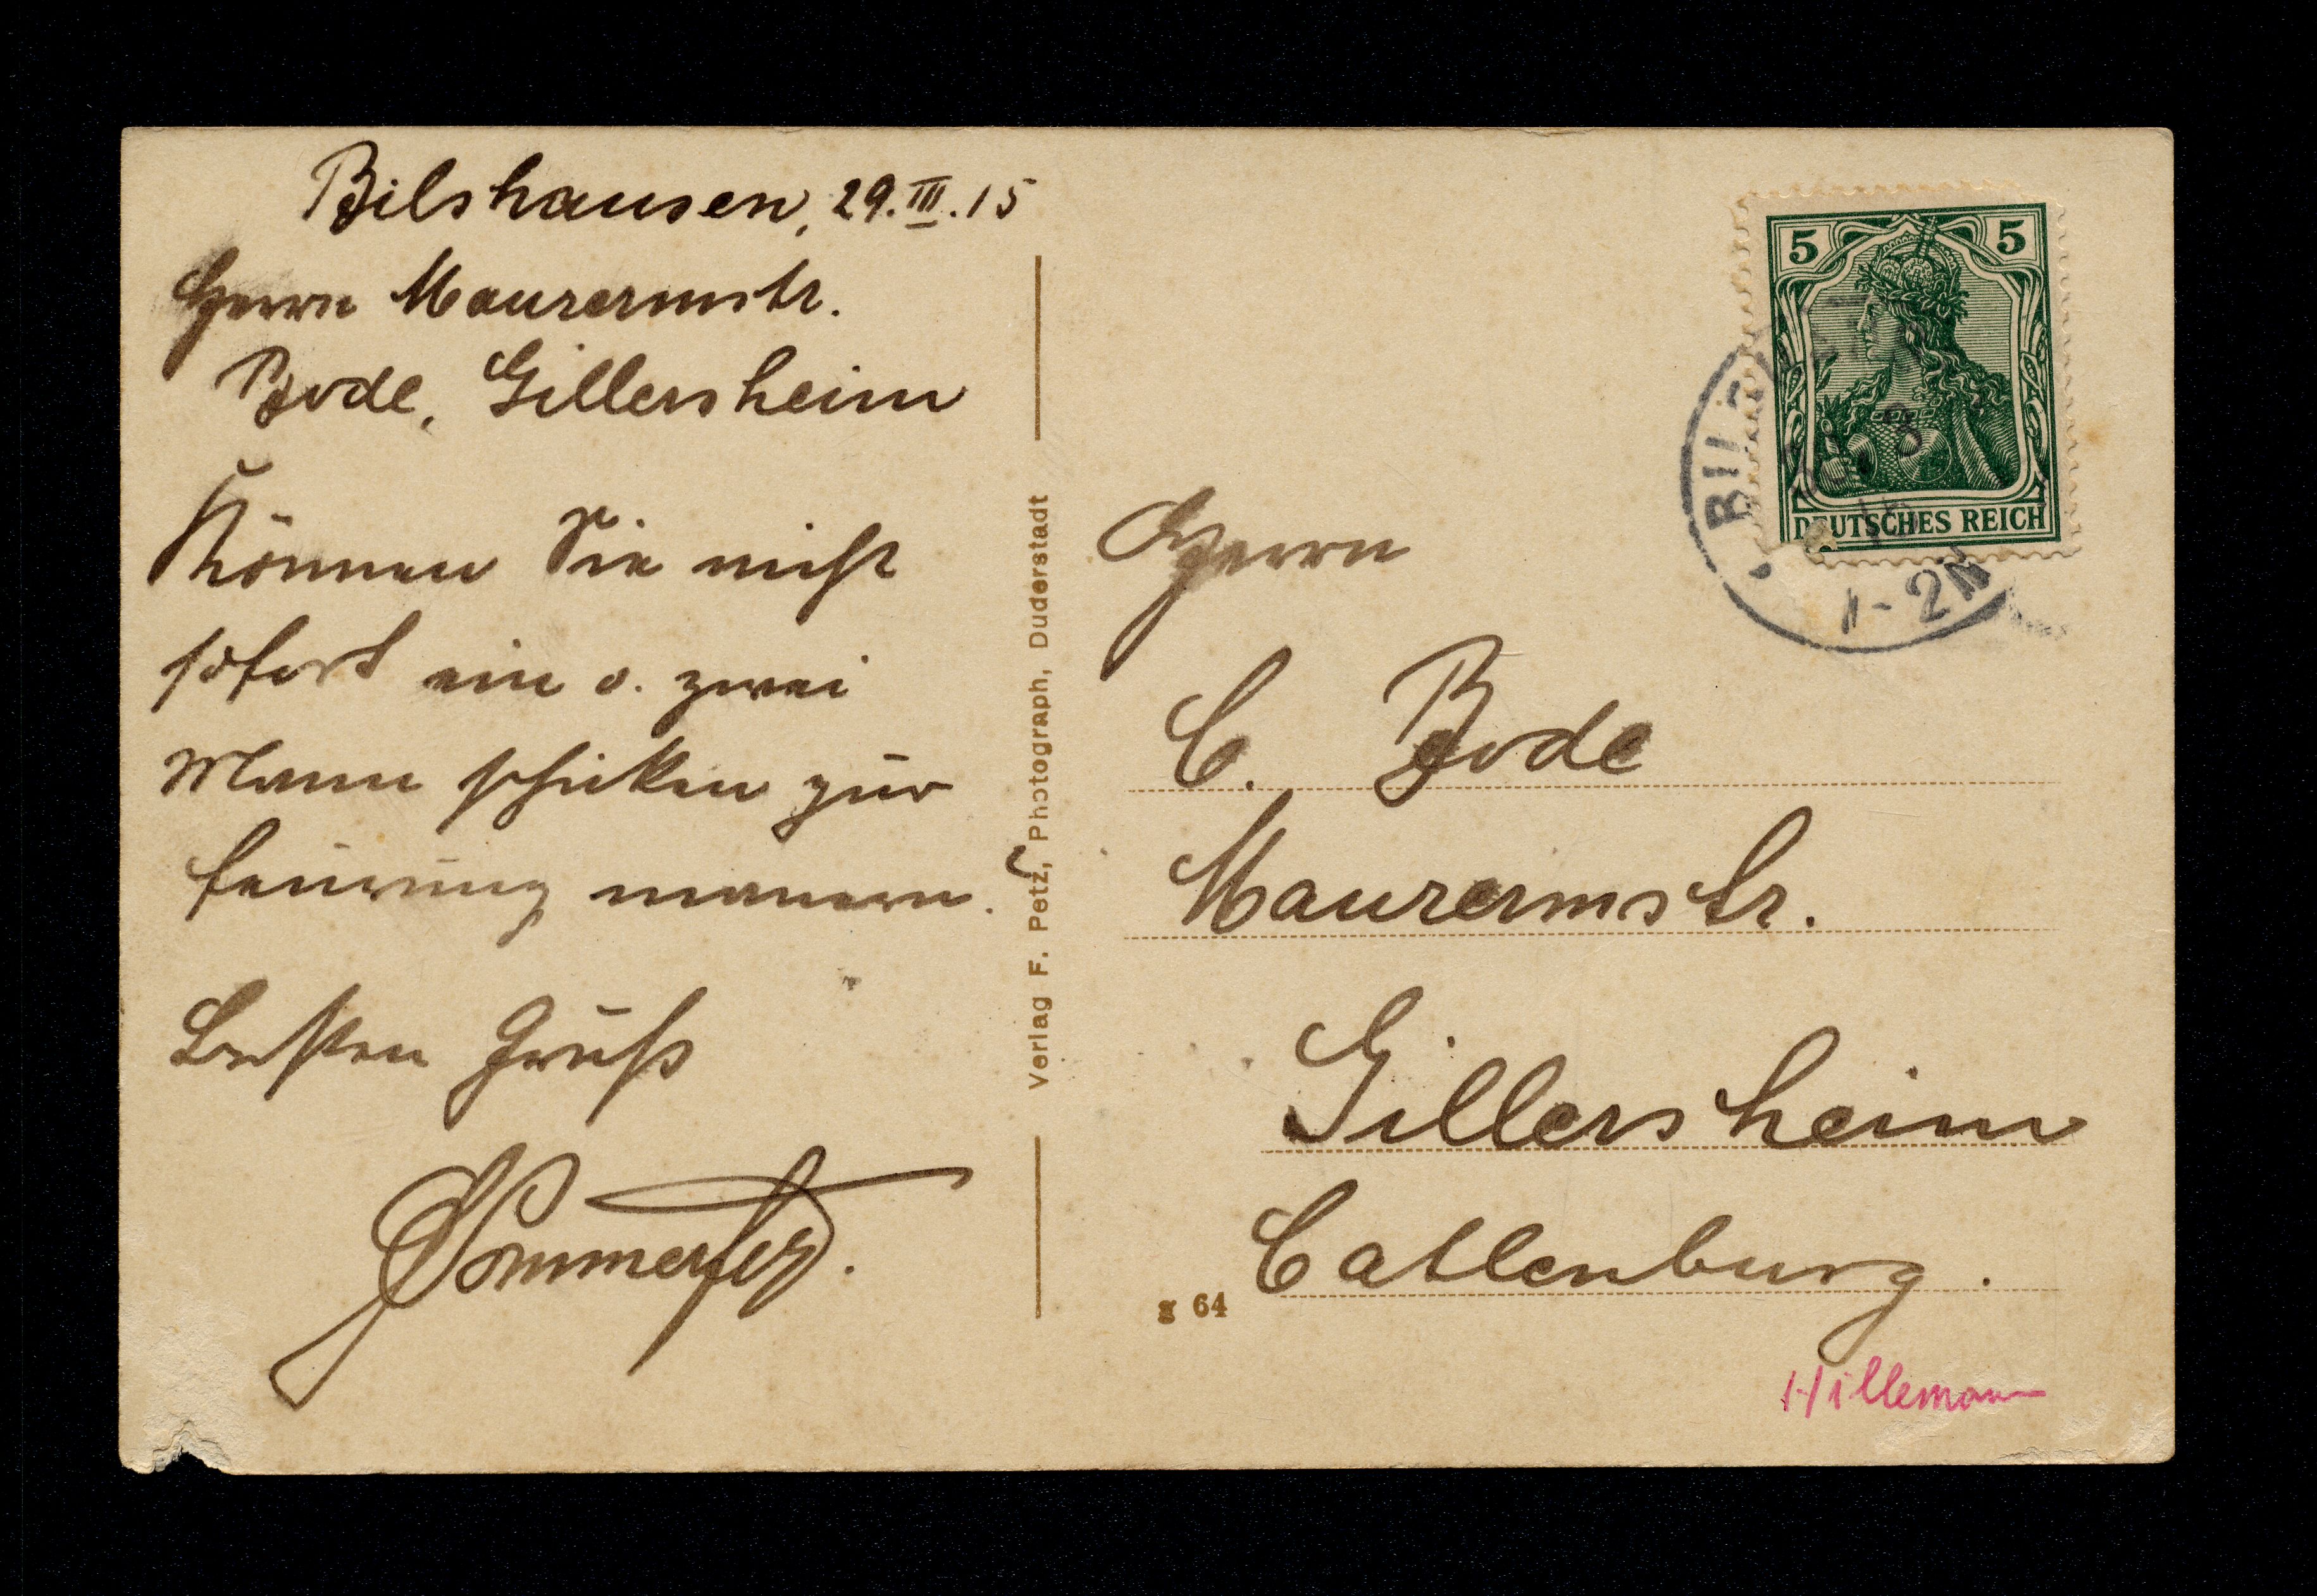 Bilshausen, 29.III.15
Herrn Maurermstr.
Bode, Gillersheim
Können Sie nicht
sofort ein o. zwei
Mann schicken zur
feuerung mauern.?
Besten Gruß
Verlag F. Petz, Photograph, Duderstadt
5 5
DEUTSCHES REICH
1-2N
Herrn
C. Bode
Maurermstr.
Gillersheim
Catlenburg.
g 64
Hillemann